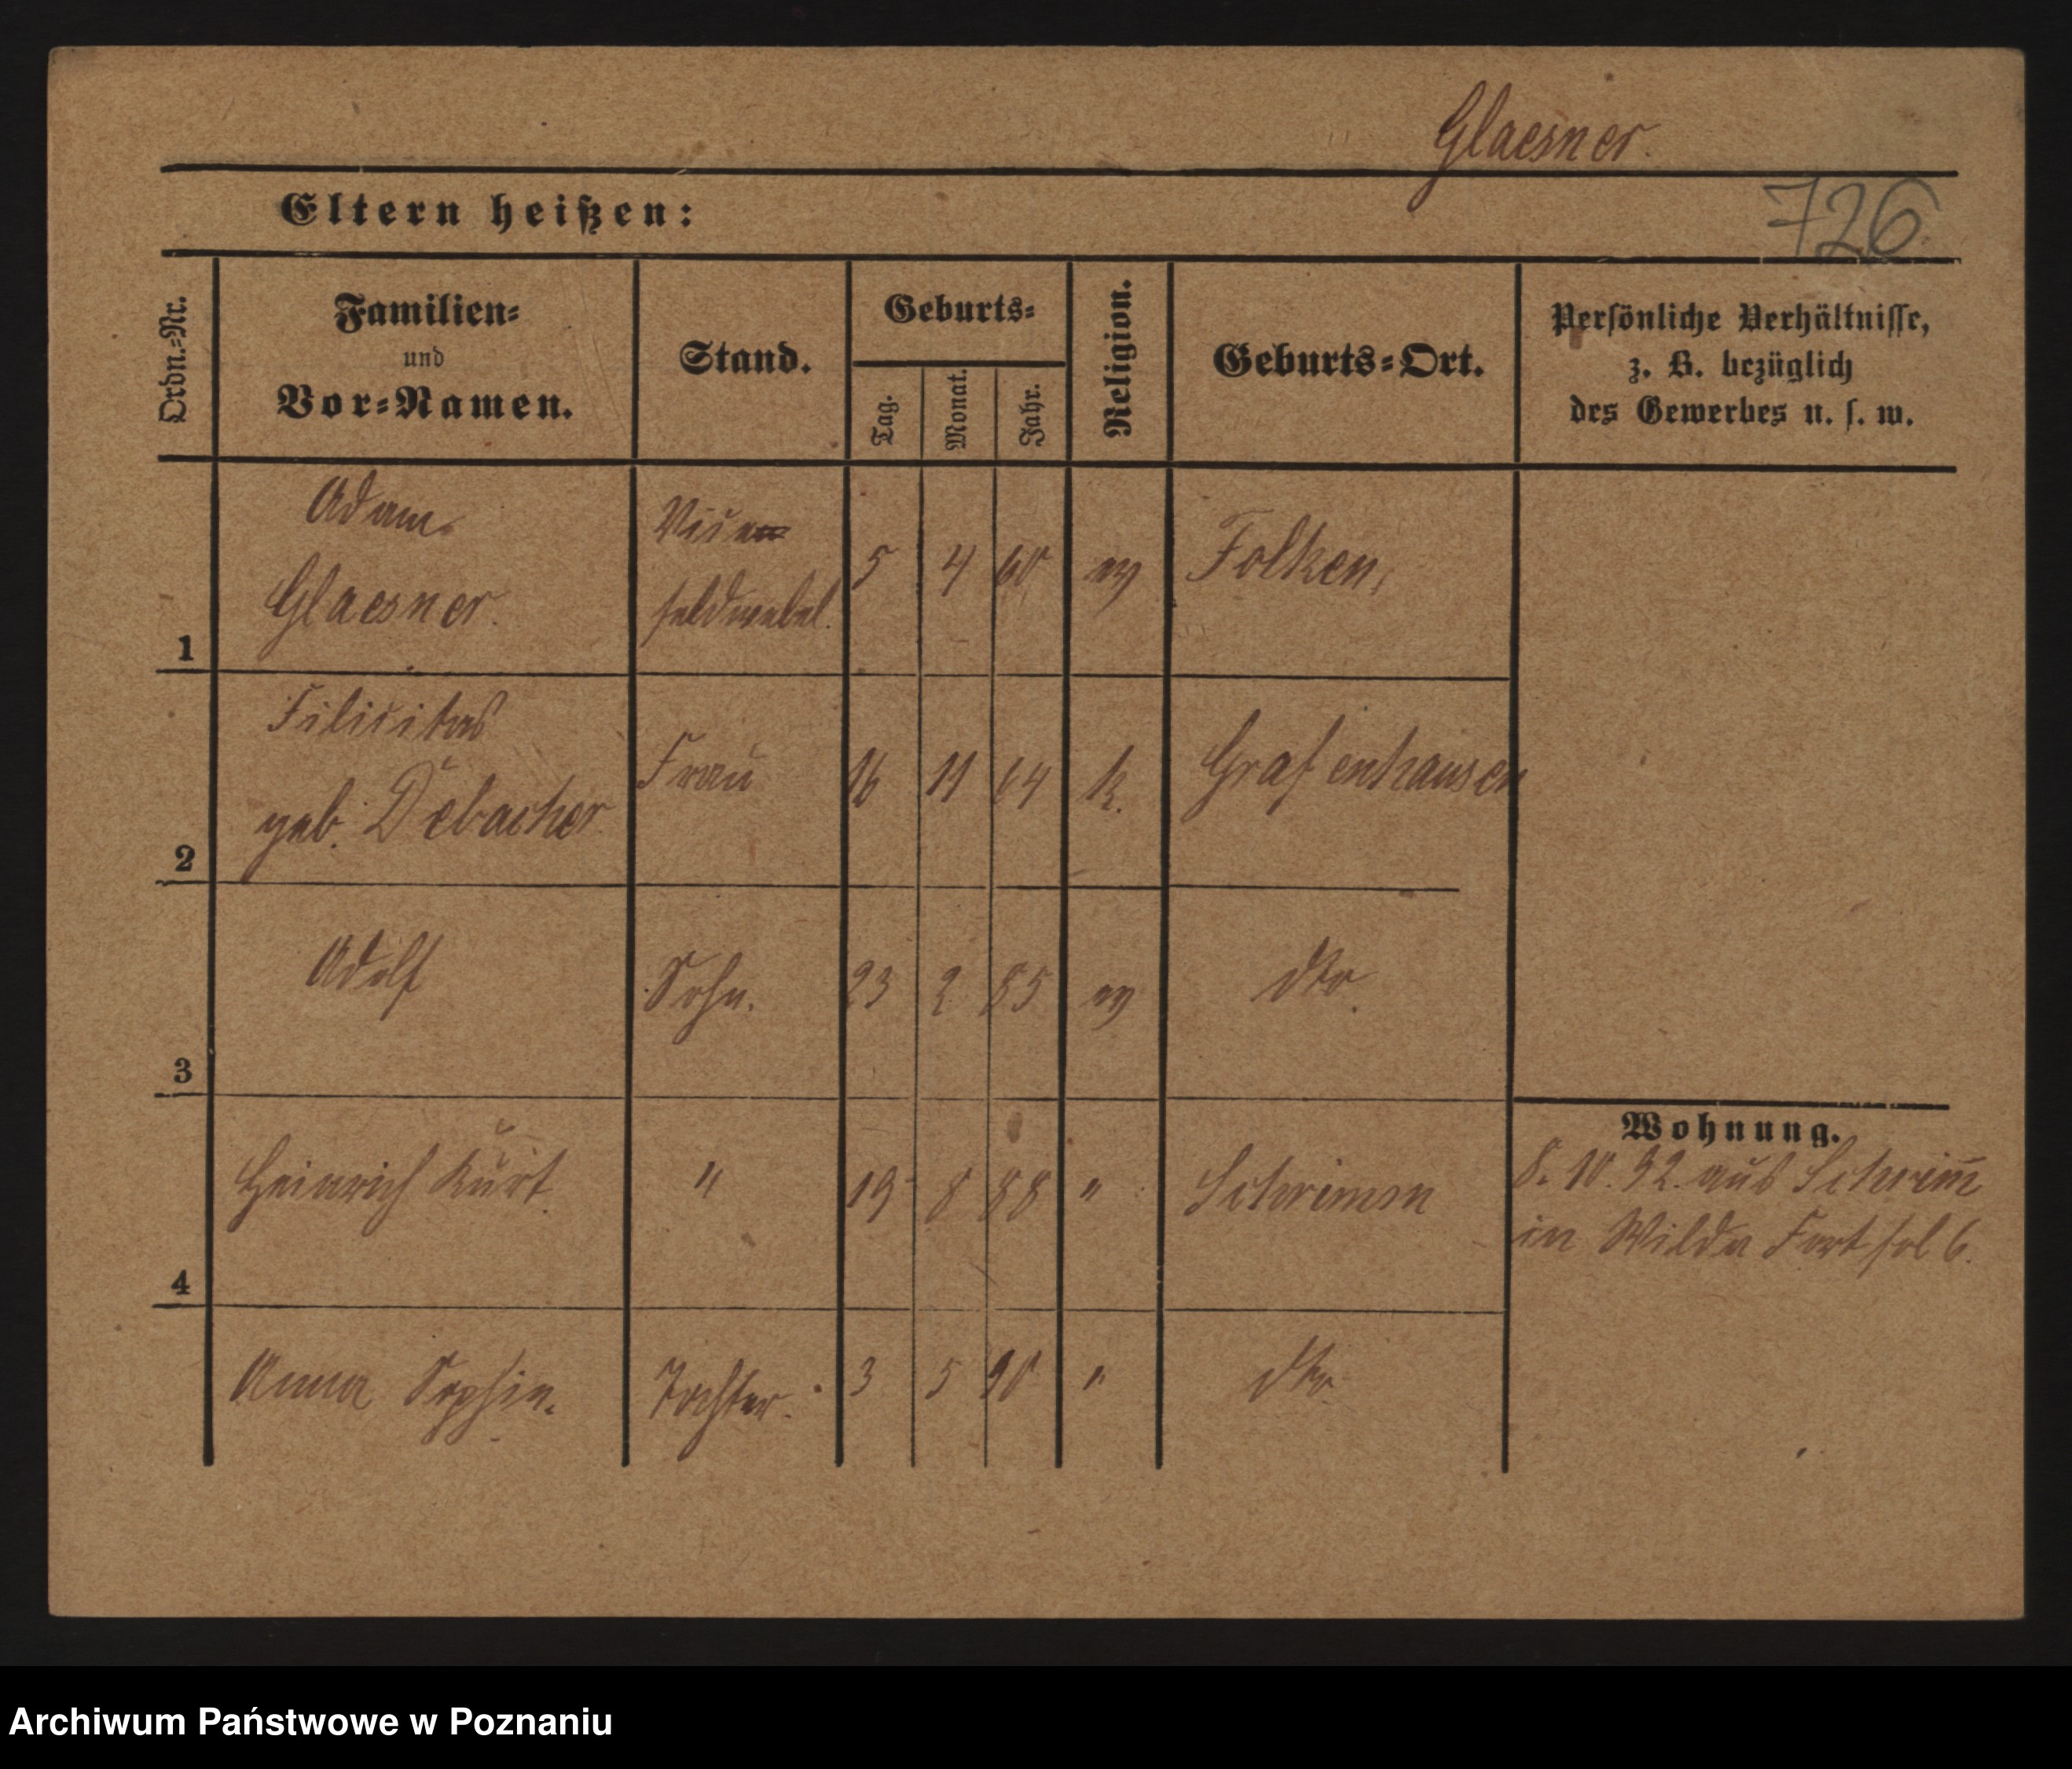 Glaesner.
Eltern heißen:
726
Ordn.=Nr.
Familien=
und
Vor=Namen.
Stand.
Geburts=
Tag.
Monat.
Jahr.
Religion.
Geburts=Ort.
Persönliche Verhältnisse,
z. B. bezüglich
des Gewerbes u. s. w.
1
Adam
Glaesner.
feldwebel.
5 4 60 ev
Folken,
2
Felicitas
geb. Debacher
Frau
16 11 64 k.
Grafenhausen
3
Adolf
Sohn.
23 2 85 ev
dto.
4
Heinrich Kurt.
"
19 8 88 "
Schrimm
Wohnung.
8. 10. 92. aus Schrim̄
in Wilda Fort 6.
Anna Sophie.
Tochter.
3 5 90 "
dto
Archiwum Państwowe w Poznaniu